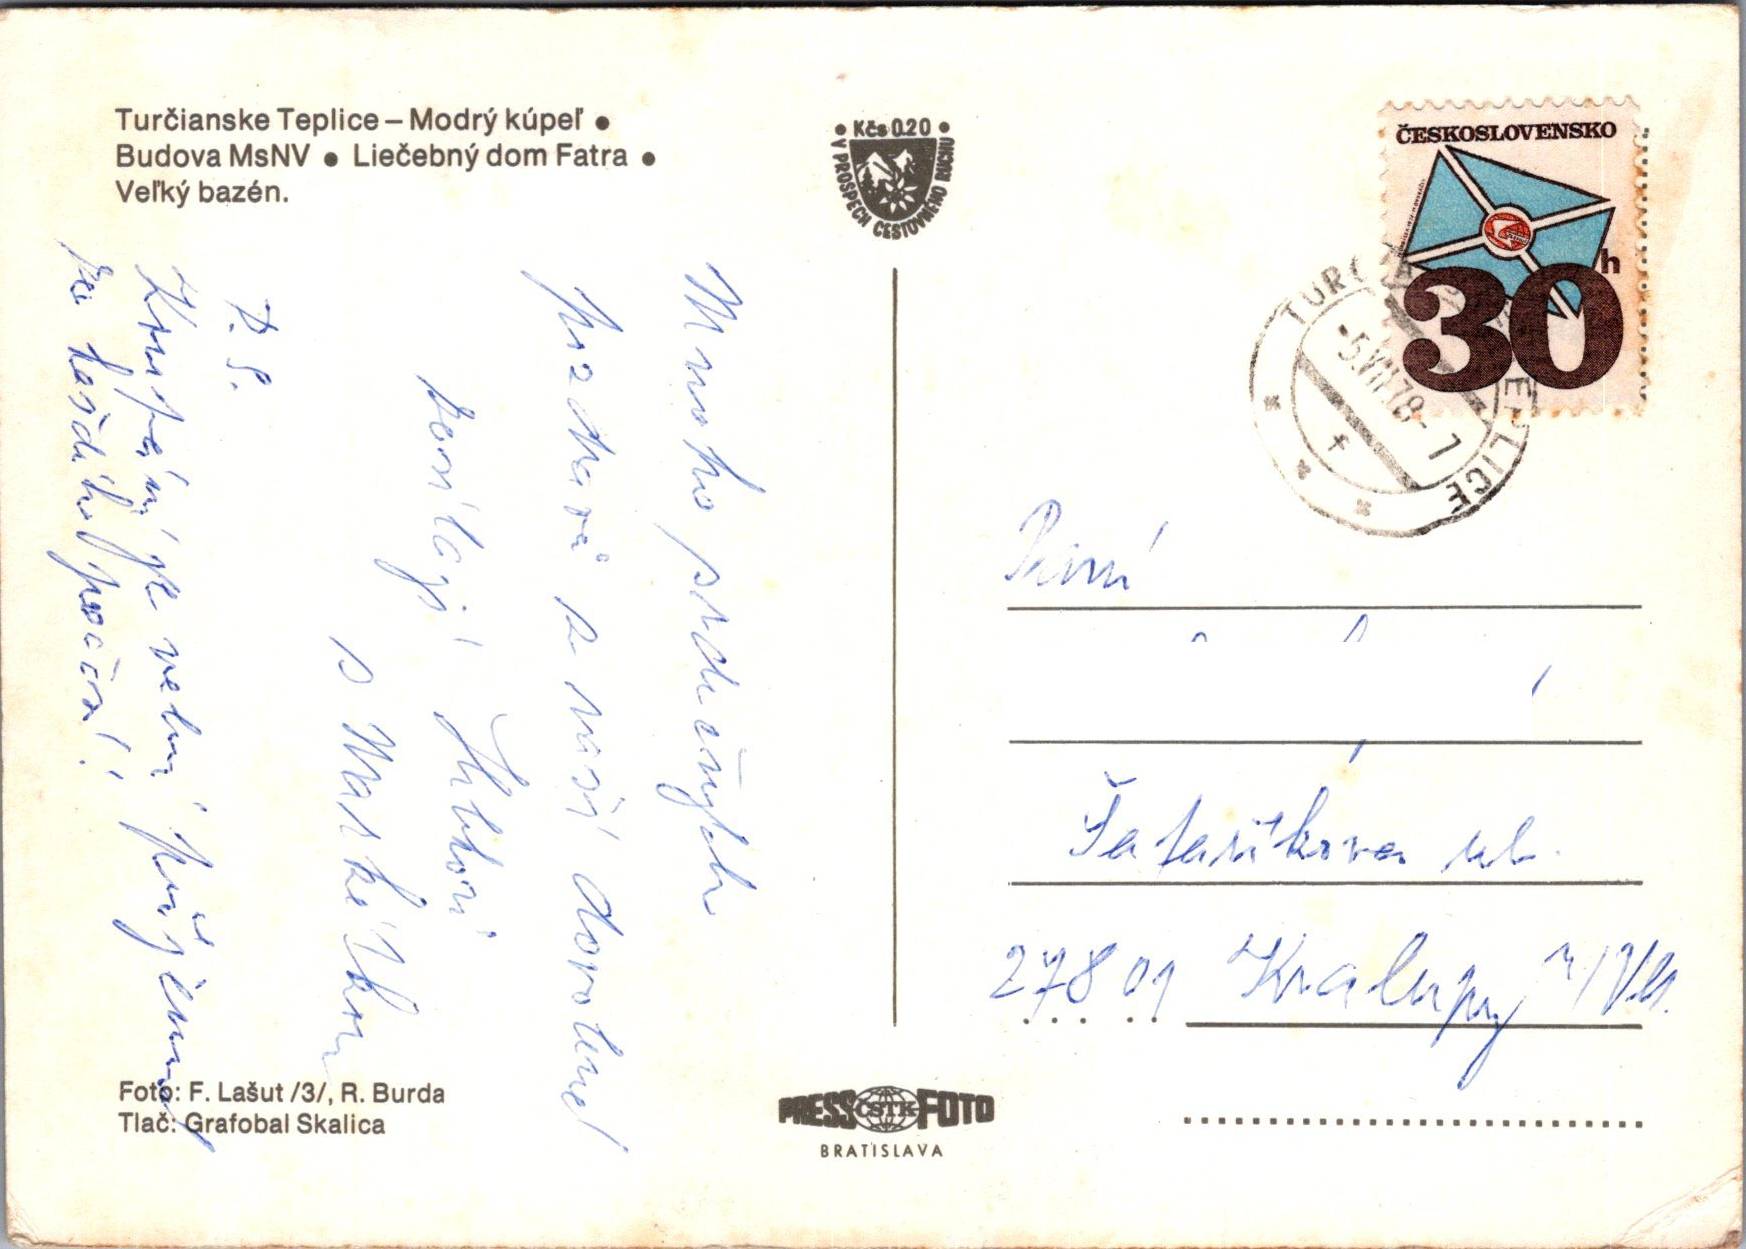 Turčianske Teplice – Modrý kúpeľ ●
Budova MsNV ● Liečebný dom Fatra ●
Veľký bazén.
● Kčs 0.20 ●
V PROSPECH CESTOVNÉHO RUCHU
ČESKOSLOVENSKO
30h
TURČIANSKE TEPLICE
-5.VII.78-7
f
Mnoho srdečných
pozdravů z naší dovolené
posílají
s Markétkou
P.S.
Koupání je velmi příjemné
za každého počasí!
Paní
Šafaříkova ul.
27801 Kralupy n/Vlt.
Foto: F. Lašut /3/, R. Burda
Tlač: Grafobal Skalica
PRESS ČSTK FOTO
BRATISLAVA